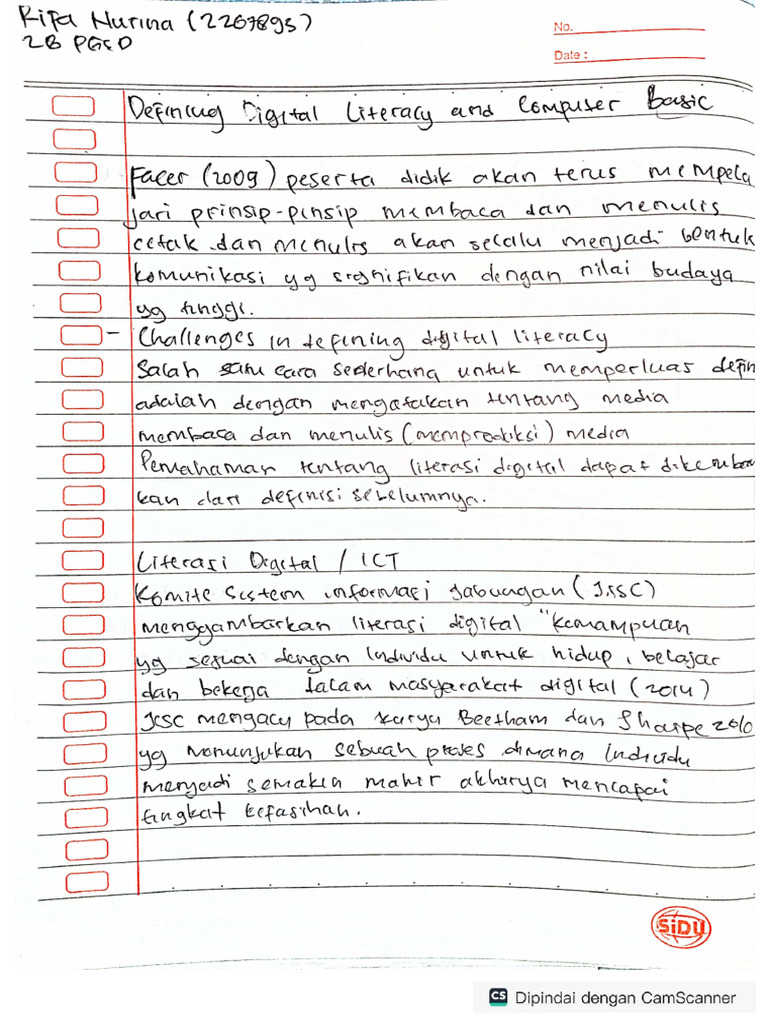 Rifa Nurina (2267895)
2B PGSD
No.
Date :
Defining Digital Literacy and Computer Basic
Facer (2009) peserta didik akan terus mempela
jari prinsip-pinsip membaca dan menulis
cetak dan menulis akan selalu menjadi bentuk
komunikasi yg signifikan dengan nilai budaya
yg tinggi.
- Challenges in defining digital literacy
Salah satu cara sederhana untuk memperluas defin
adalah dengan mengatakan tentang media
membaca dan menulis (memprodiksi) media
Pemahaman tentang literasi digital dapat dikemban
kan dari definisi sebelumnya.
Literasi Digital / ICT
Komite Sistem informasi Gabungan (JISC)
menggambarkan literasi digital "kemampuan
yg sesuai dengan individu untuk hidup, belajar
dan bekerja dalam masyarakat digital (2014)
JISC mengacu pada karya Beetham dan Sharpe 2010
yg menunjukan sebuah proses dimana individu
menjadi semakin mahir akhirya mencapai
tingkat kefasihan.
SiDU
CS Dipindai dengan CamScanner